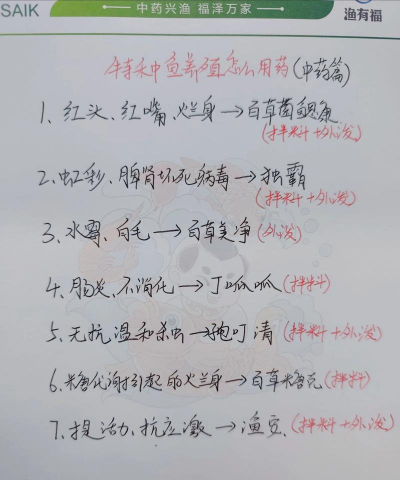 SAIK
中药兴渔 福泽万家
渔有福
特种鱼养殖怎么用药(中药篇)
1、红头、红嘴、烂身→百草菌鳃康
(拌料+外泼)
2、虹彩、脾肾坏死病毒→独霸
(拌料+外泼)
3、水霉、白毛→百草美净(外泼)
4、肠炎、不消化→丁呱呱(拌料)
5、无抗温和杀虫→孢叮清(拌料+外泼)
6、糖代谢引起的烂身→百草糖克(拌料)
7、提活、抗应激→渔宝(拌料+外泼)